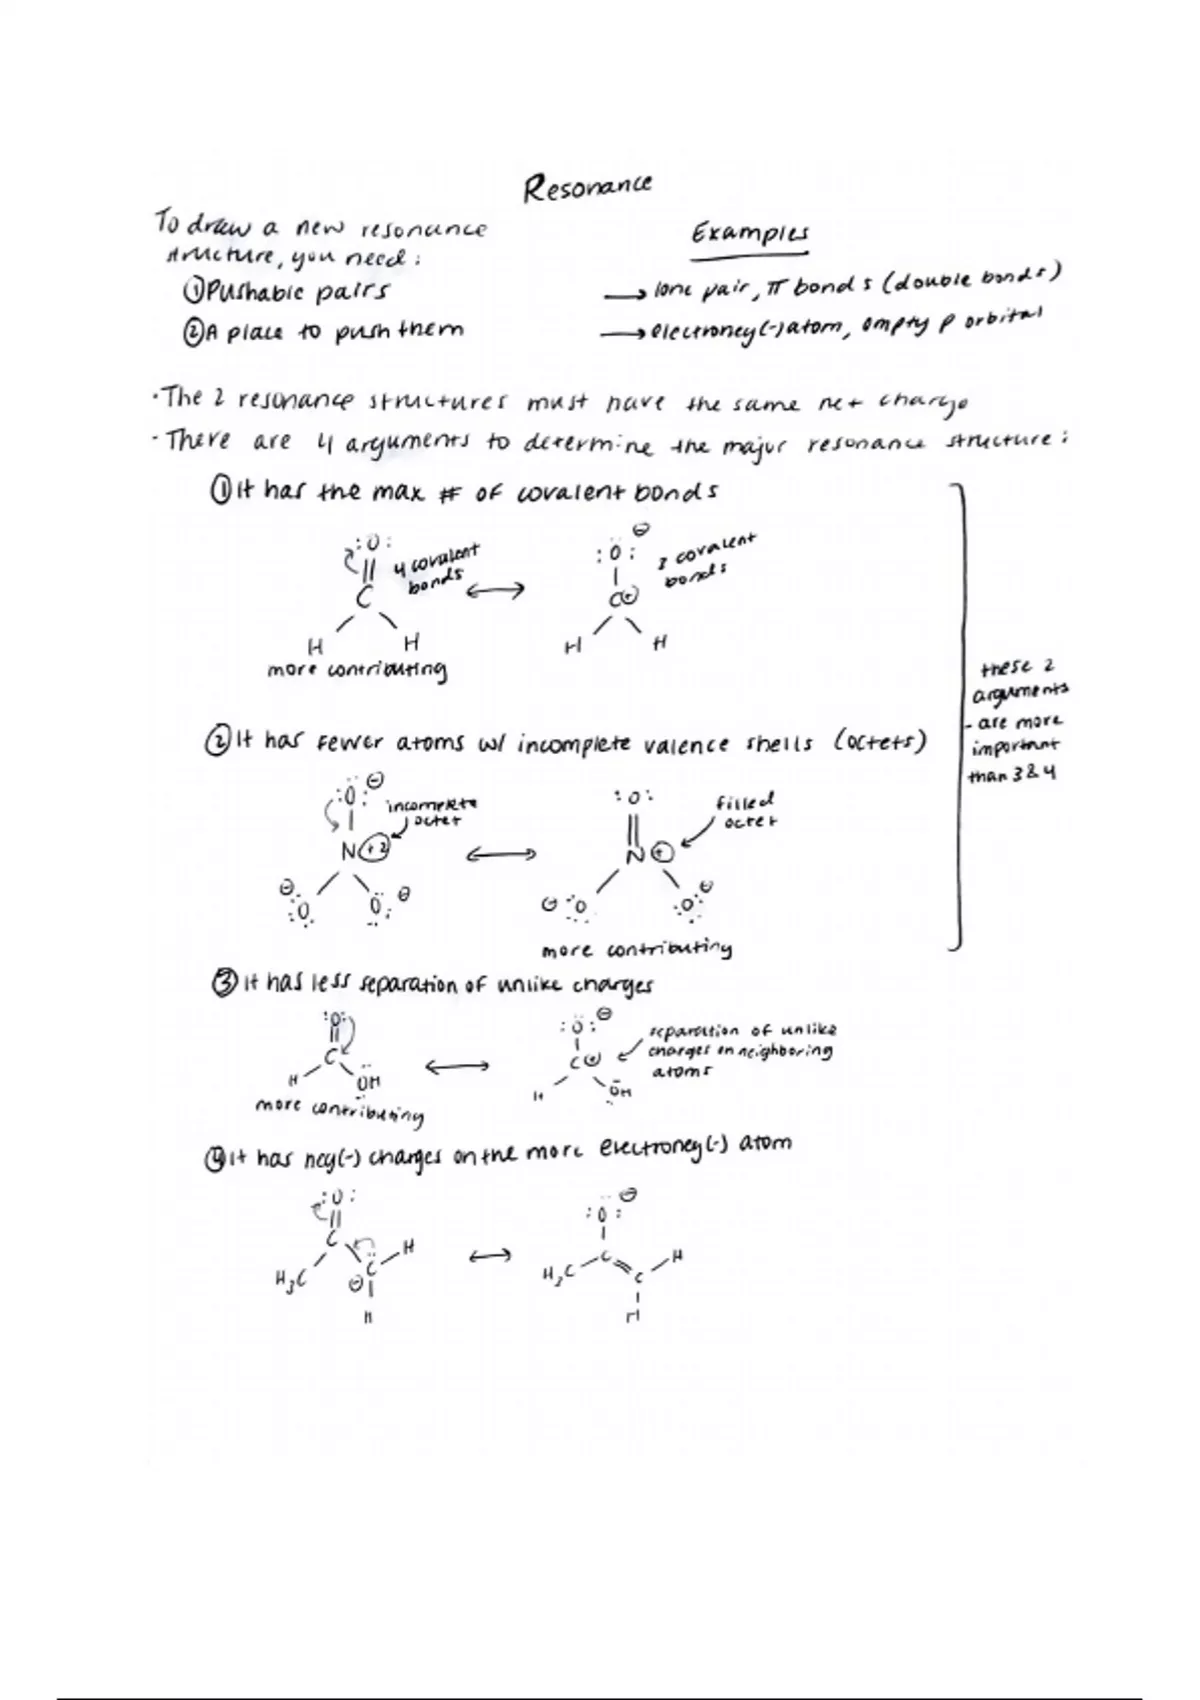 Resonance
To draw a new resonance
structure, you need:
Examples
①Pushable pairs
→ lone pair, π bonds (double bonds)
②A place to push them
→ electroneg(-) atom, empty p orbital
·The 2 resonance structures must have the same net charge
·There are 4 arguments to determine the major resonance structure:
①It has the max # of covalent bonds
:O: 4 covalent
bonds
C
H H
more contributing
↔
⊖
:O: 3 covalent
bonds
C⊕
H H
②It has fewer atoms w/ incomplete valence shells (octets)
⊖
:O: incomplete
octet
N +2
⊖ :O O: ⊖
↔
:O: filled
octet
N⊕
⊖ :O :O: ⊖
more contributing
these 2
arguments
- are more
important
than 3 & 4
③It has less separation of unlike charges
:O:
C
H OH
more contributing
↔
:O: ⊖
C⊕
H OH
separation of unlike
charges on neighboring
atoms
④It has neg(-) charges on the more electroneg(-) atom
:O:
C
H₃C ⊖ C H
H
↔
⊖
:O:
C
H₃C C H
H